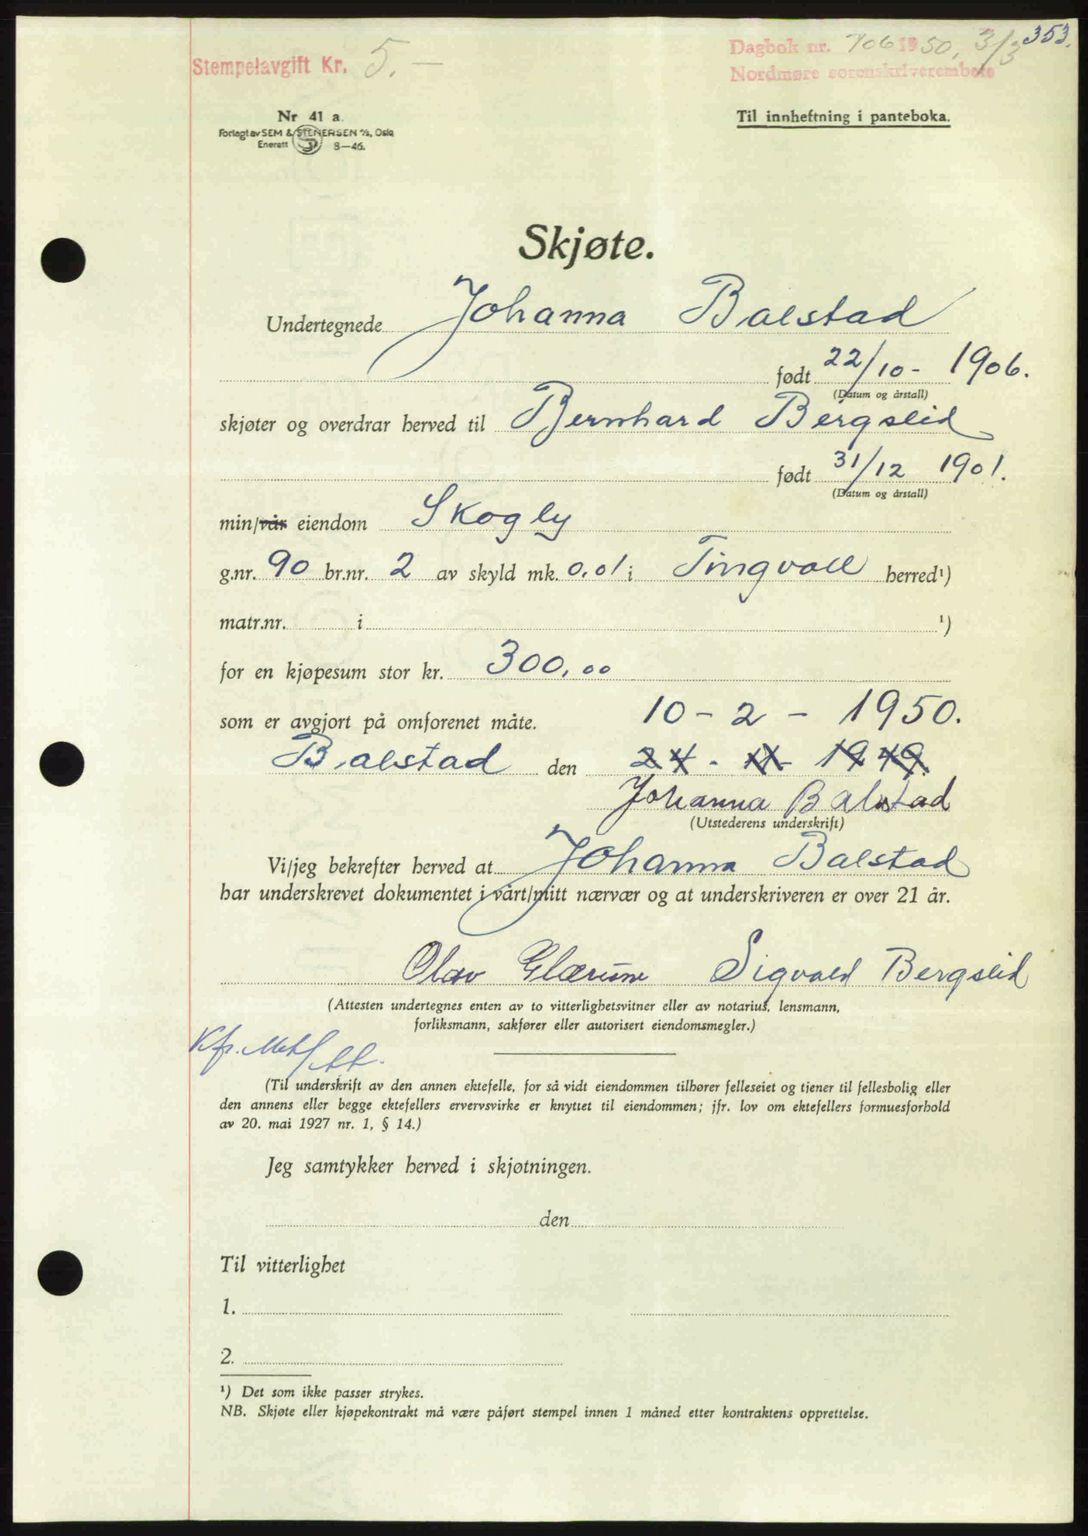 353.
Dagbok nr. 706 1950, 3/3
Stempelavgift Kr. 5.—
Nordmøre sorenskriverembete
Nr 41 a.
Forlagt av SEM & STENERSEN A/S, Oslo
Enerett 8—46.
Til innheftning i panteboka.
Skjøte.
Undertegnede Johanna Balstad
født 22/10 - 1906.
(Datum og årstall)
skjøter og overdrar herved til Bernhard Bergslid
født 31/12 1901.
(Datum og årstall)
min/vår eiendom Skogly
g.nr. 90 br.nr. 2 av skyld mk. 0,01 i Tingvoll herred¹)
matr.nr. i ¹)
for en kjøpesum stor kr. 300,00
som er avgjort på omforenet måte. 10 - 2 - 1950.
Balstad den 24 - 11 - 1949.
Johanna Balstad
(Utstederens underskrift)
Vi/jeg bekrefter herved at Johanna Balstad
har underskrevet dokumentet i vårt/mitt nærvær og at underskriveren er over 21 år.
Olav Glærum Sigvald Bergslid
(Attesten undertegnes enten av to vitterlighetsvitner eller av notarius, lensmann,
forliksmann, sakfører eller autorisert eiendomsmegler.)
(Til underskrift av den annen ektefelle, for så vidt eiendommen tilhører felleseiet og tjener til fellesbolig eller
den annens eller begge ektefellers ervervsvirke er knyttet til eiendommen; jfr. lov om ektefellers formuesforhold
av 20. mai 1927 nr. 1, § 14.)
Jeg samtykker herved i skjøtningen.
den
Til vitterlighet
1.
2.
¹) Det som ikke passer strykes.
NB. Skjøte eller kjøpekontrakt må være påført stempel innen 1 måned etter kontraktens opprettelse.